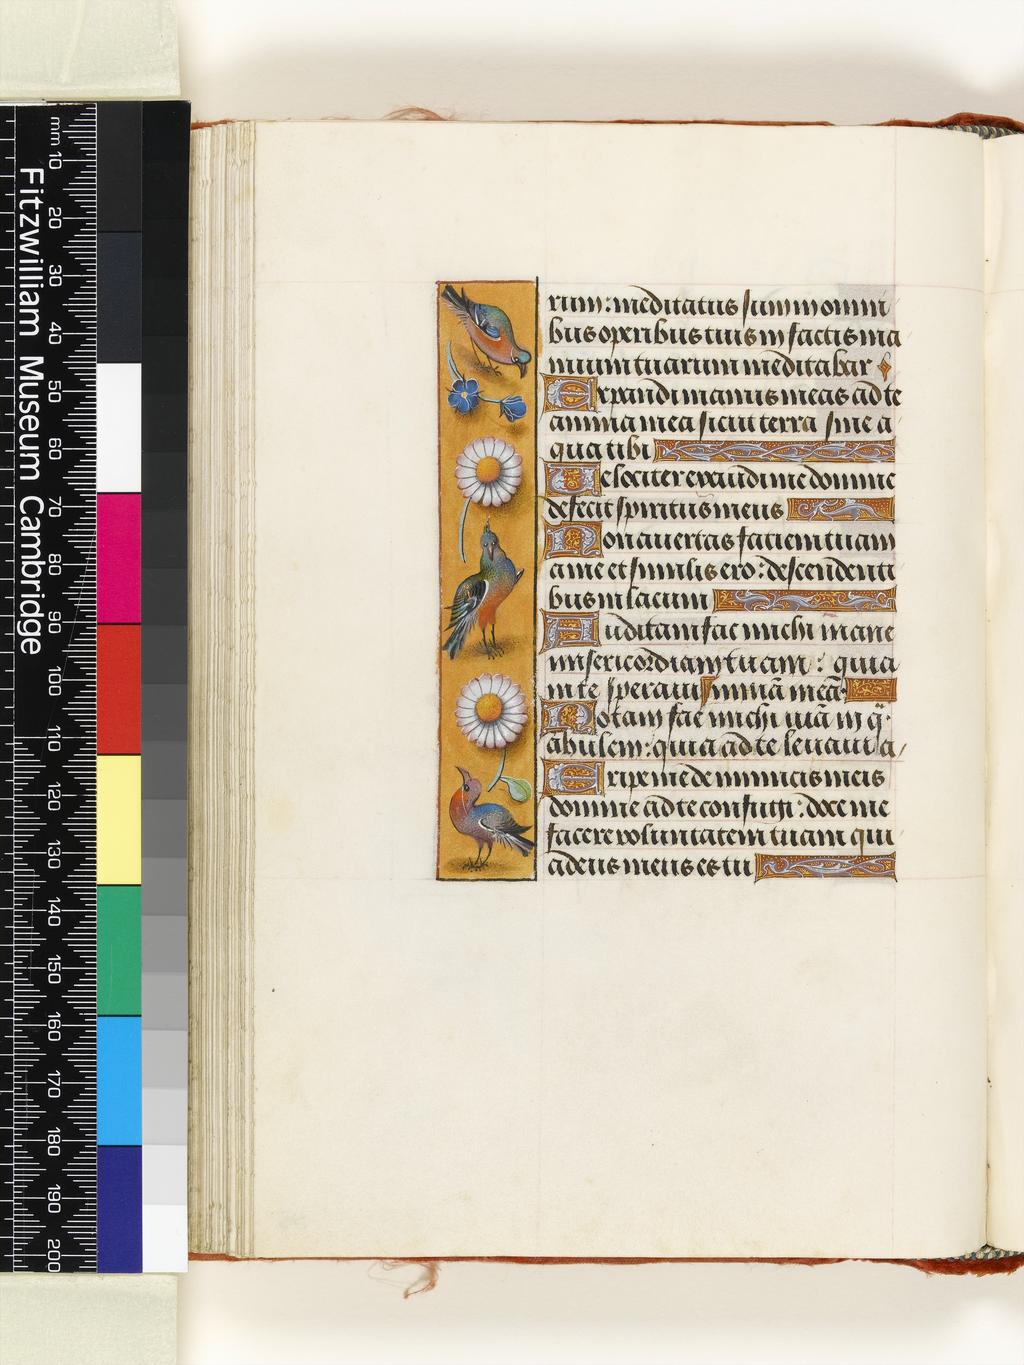 mm 10 20 30 40 50 60 70 80 90 100 110 120 130 140 150 160 170 180 190 200
Fitzwilliam Museum Cambridge
rum: meditatus sum in omni
bus operibus tuis in factis ma
nuum tuarum meditabar
Expandi manus meas ad te
anima mea sicut terra sine a
qua tibi
Velociter exaudi me domine
defecit spiritus meus
Non avertas faciem tuam
a me et similis ero: descendenti
bus in lacum
Auditam fac michi mane
misericordiam tuam: quia
in te speravi
Notam fac michi viā in q̄
ābulem: quia ad te levavi
Eripe me de inimicis meis
domine ad te confugi: doce me
facere voluntatem tuam qui
a deus meus es tu